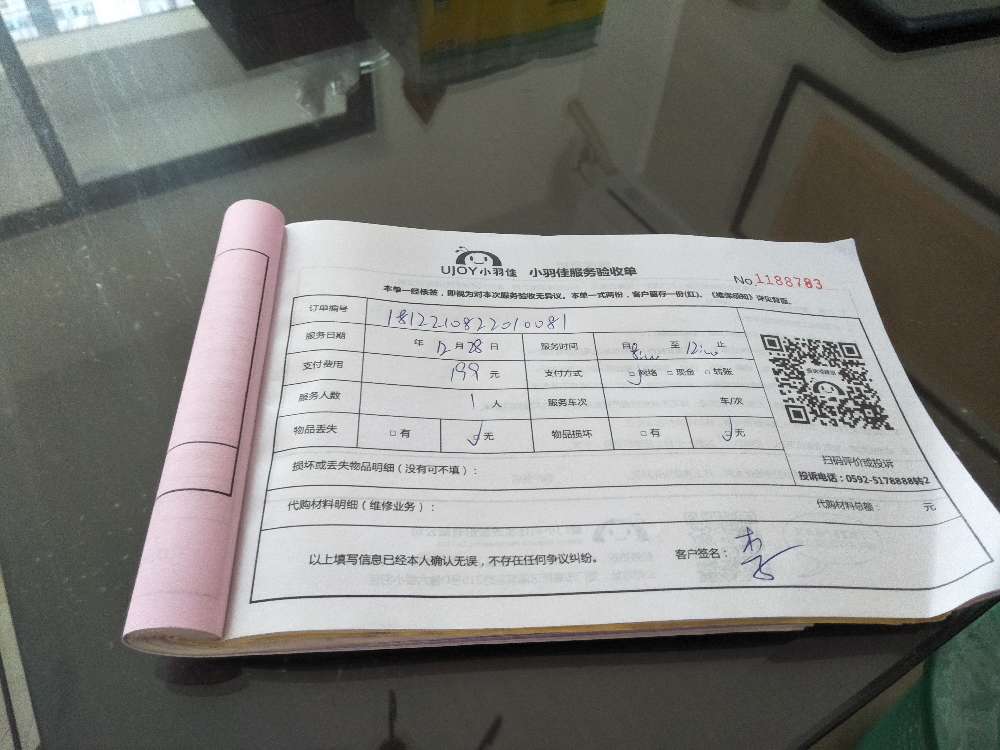 UJOY小羽佳 小羽佳服务验收单
No 1188783
本单一经核签，即视为对本次服务验收无异议。本单一式两份，客户留存一份(红)。
订单编号 1812210822010081
服务日期 年 12 月 28 日 服务时间 至 止
支付费用 199 元 支付方式 □网络 □现金 □转账
服务人数 1 人 服务车次 车/次
物品丢失 □有 无 物品损坏 □有 无
扫码评价或投诉
损坏或丢失物品明细（没有可不填）：
投诉电话：0592-5178888转2
代购材料明细（维修业务）： 代购材料总额： 元
以上填写信息已经本人确认无误，不存在任何争议纠纷。 客户签名：